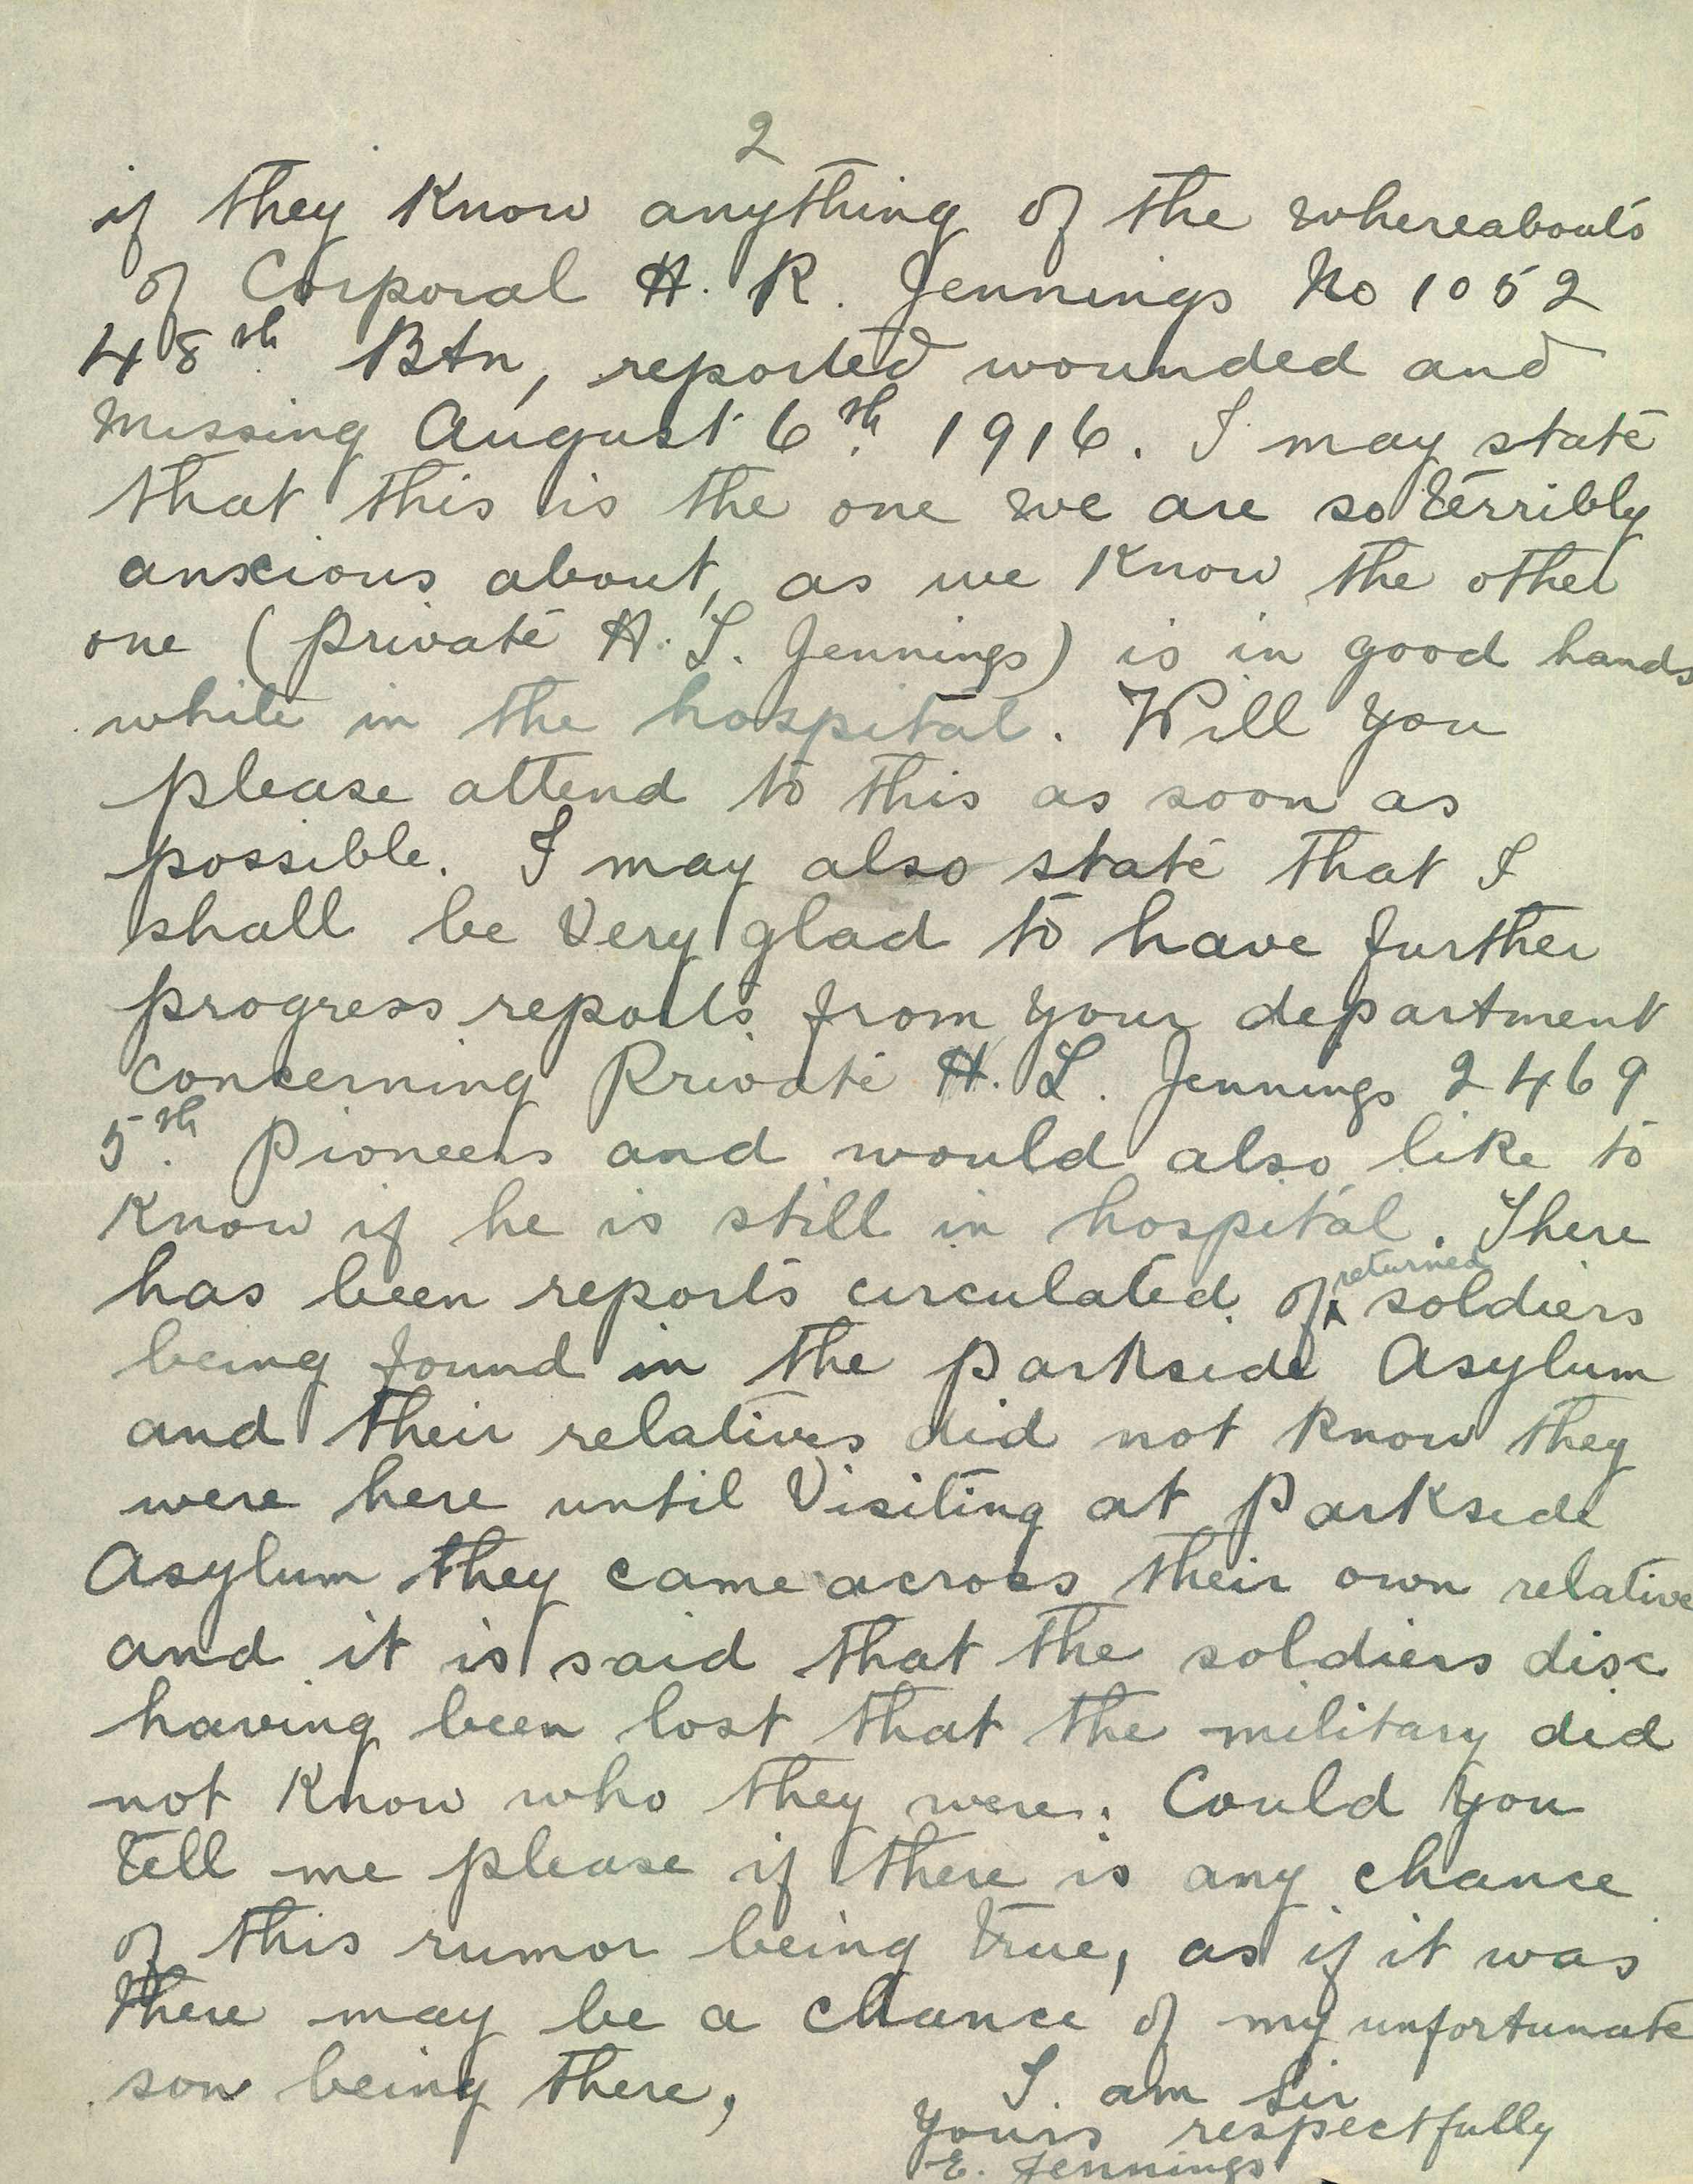 2
if they know anything of the whereabouts
of Corporal H. R. Jennings No 1052
48th Btn, reported wounded and
missing August 6th 1916. I may state
that this is the one we are so terribly
anxious about, as we know the other
one (Private H. L. Jennings) is in good hands
while in the hospital. Will you
please attend to this as soon as
possible. I may also state that I
shall be very glad to have further
progress reports from your department
concerning Private H. L. Jennings 2469
5th Pioneers and would also like to
know if he is still in hospital. There
has been reports circulated of returned soldiers
being found in the Parkside Asylum
and their relatives did not know they
were here until visiting at Parkside
Asylum they came across their own relative
and it is said that the soldiers disc
having been lost that the military did
not know who they were. Could you
tell me please if there is any chance
of this rumor being true, as if it was
there may be a chance of my unfortunate
son being there,
I am Sir
yours respectfully
E. Jennings